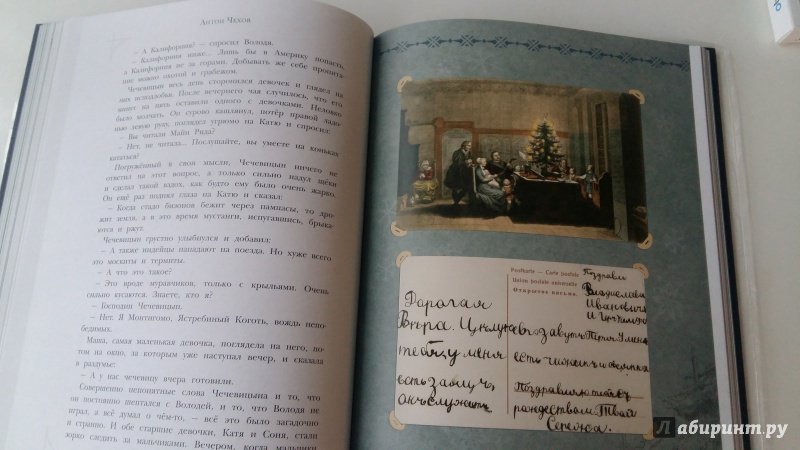 Антон Чехов
— А Калифорния? — спросил Володя.
— Калифорния ниже... Лишь бы в Америку попасть,
а Калифорния не за горами. Добывать же себе пропита-
ние можно охотой и грабежом.
Чечевицын весь день сторонился девочек и глядел на
них исподлобья. После вечернего чая случилось, что его
минут на пять оставили одного с девочками. Неловко
было молчать. Он сурово кашлянул, потёр правой ладо-
нью левую руку, поглядел угрюмо на Катю и спросил:
— Вы читали Майн Рида?
— Нет, не читала... Послушайте, вы умеете на коньках
кататься?
Погружённый в свои мысли, Чечевицын ничего не
ответил на этот вопрос, а только сильно надул щёки
и сделал такой вздох, как будто ему было очень жарко.
Он ещё раз поднял глаза на Катю и сказал:
— Когда стадо бизонов бежит через пампасы, то дро-
жит земля, а в это время мустанги, испугавшись, брыка-
ются и ржут.
Чечевицын грустно улыбнулся и добавил:
— А также индейцы нападают на поезда. Но хуже всего
это москиты и термиты.
— А что это такое?
— Это вроде муравчиков, только с крыльями. Очень
сильно кусаются. Знаете, кто я?
— Господин Чечевицын.
— Нет. Я Монтигомо, Ястребиный Коготь, вождь непо-
бедимых.
Маша, самая маленькая девочка, поглядела на него, по-
том на окно, за которым уже наступал вечер, и сказала в
раздумье:
— А у нас чечевицу вчера готовили.
Совершенно непонятные слова Чечевицына и то, что
он постоянно шептался с Володей, и то, что Володя не
играл, а всё думал о чём-то, — всё это было загадочно
и странно. И обе старшие девочки, Катя и Соня, стали
зорко следить за мальчиками. Вечером, когда мальчики
Postkarte — Carte postale
Union postale universelle
Открытое письмо.
Поздравл
Владислава
Ивановича
Дорогая
Вера.
тебя у меня
есть
Поздравляю тебя съ
рождеством Твой
Сережа.
лабиринт.ру